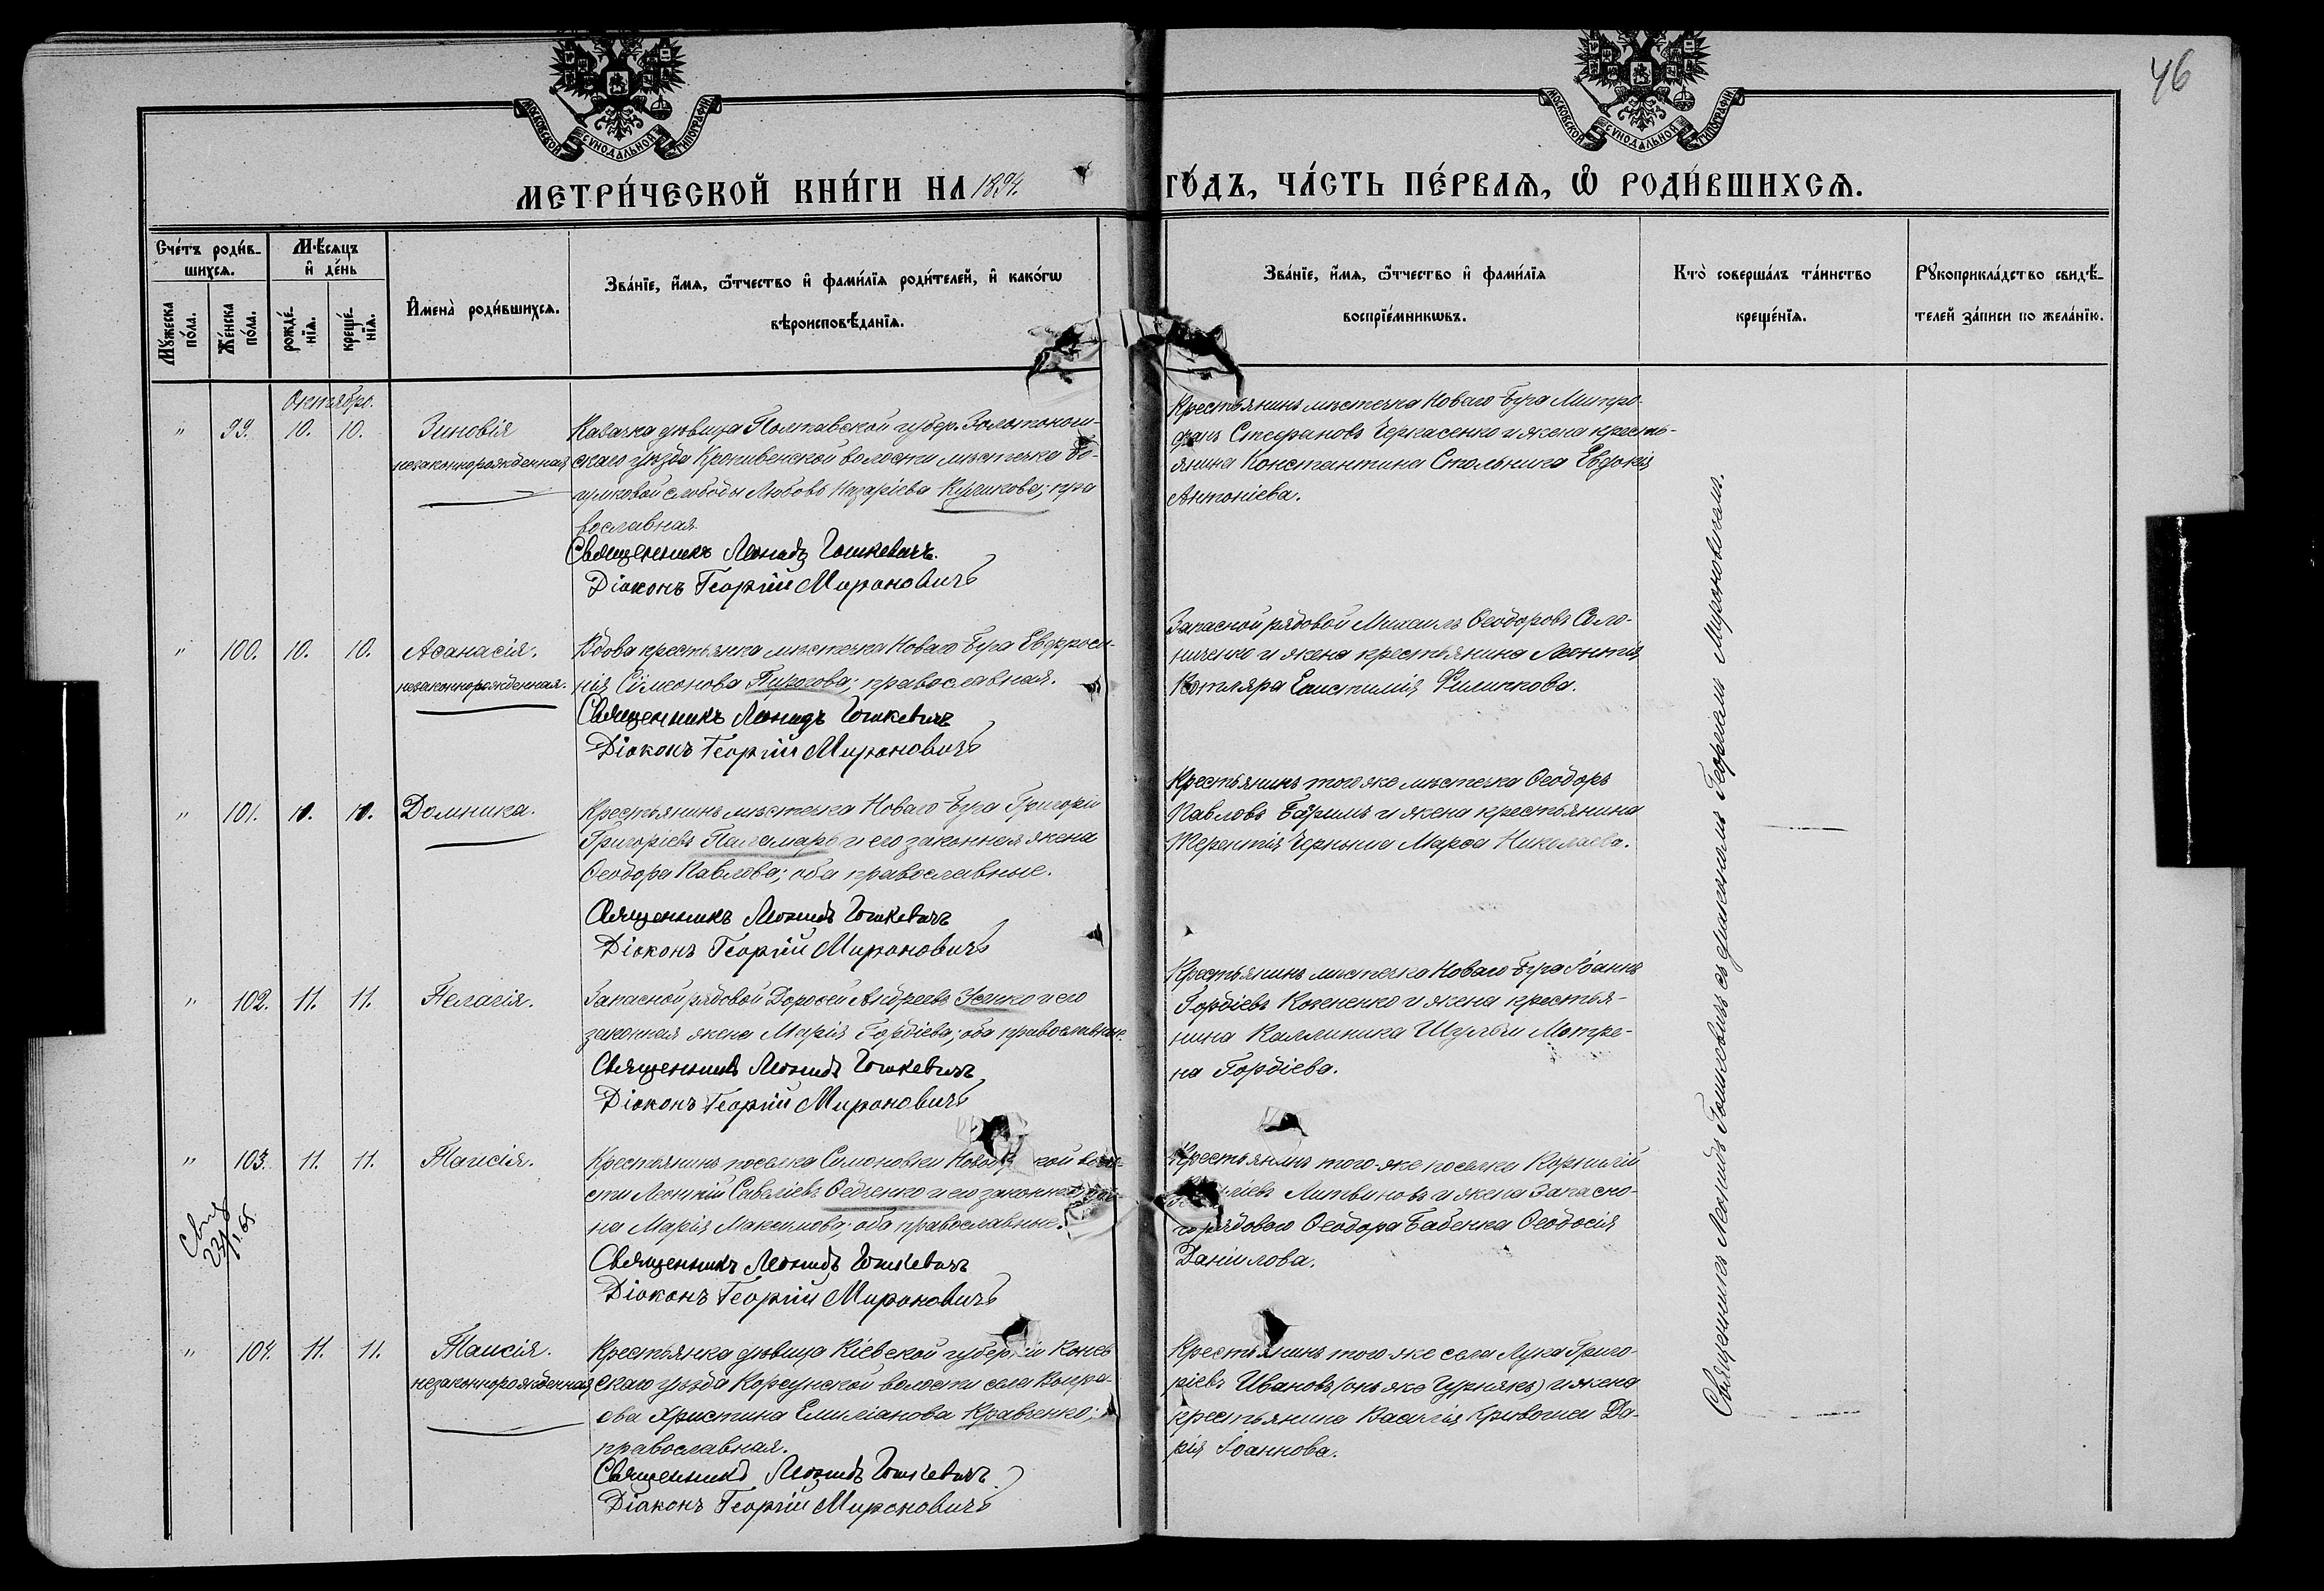 46
МОСКОВСКОЙ СѴНОДАЛЬНОЙ ТИПОГРАФІИ
МОСКОВСКОЙ СѴНОДАЛЬНОЙ ТИПОГРАФІИ
МЕТРИ́ЧЕСКОЙ КНИ́ГИ НА 1894. ГО́ДЪ, ЧА́СТЬ ПЕ́РВАѦ, Ѽ РОДИ́ВШИХСѦ.
Сче́тъ роди́в-
шихсѧ.
Мꙋ́жеска
по́ла.
Же́нска
по́ла.
Мѣ́сѧцъ
и҆ де́нь
рожде́-
нїѧ.
креще́-
нїѧ.
И҆мена̀ роди́вшихсѧ.
Зва́нїе, и҆́мѧ, ѻ҆́тчество и҆ фами́лїѧ роди́телей, и҆ како́гѡ
вѣроисповѣ́данїѧ.
Зва́нїе, и҆́мѧ, ѻ҆́тчество и҆ фами́лїѧ
воспрїе́мникѡвъ.
Кто̀ соверша́лъ та́инство
креще́нїѧ.
Рꙋкоприкла́дство свидѣ́-
телей за́писи по жела́нїю.
Октября.
" 99. 10. 10.
Зиновія
незаконнорожденная
Казачка дѣвица Полтавской губер. Золотонош-
скаго уѣзда Кропивенской волости мѣстечка Бо-
гушковой слободы Любовь Назаріева Куликова; пра
вославная.
Священникъ Леонидъ Гошкевичъ.
Діаконъ Георгій Мироновичъ
Крестьянинъ мѣстечка Новаго-Буга Митро-
фанъ Стефановъ Черкасенко и жена кресть-
янина Константина Стольника Евдокія
Антоніева.
" 100. 10. 10.
Аѳанасія.
незаконнорожденная.
Вдова крестьянка мѣстечка Новаго-Буга Евфроси-
нія Сѵмеонова Пирогова; православная.
Священникъ Леонидъ Гошкевичъ
Діаконъ Георгій Мироновичъ
Запасной рядовой Михаилъ Ѳеодоровъ Соло-
ниченко и жена крестьянина Леонтія
Котляра Епистимія Филиппова.
" 101. 10. 10.
Домника.
Крестьянинъ мѣстечка Новаго-Буга Григорій
Григоріевъ Паламарь и его законная жена
Ѳеодора Павлова; оба православные.
Священникъ Леонидъ Гошкевичъ
Діаконъ Георгій Мироновичъ
Крестьянинъ того-же мѣстечка Ѳеодоръ
Павловъ и жена крестьянина
Терентія Черныша Марѳа Николаева.
" 102. 11. 11.
Пелагія.
Запасной рядовой Дороѳей Андреевъ Усенко и его
законная жена Марія Гордіева; оба православные.
Священникъ Леонидъ Гошкевичъ
Діаконъ Георгій Мироновичъ
Крестьянинъ мѣстечка Новаго-Буга Іоаннъ
Гордіевъ и жена крестья-
нина Каллиника Шульги Мотре-
на Гордіева.
" 103. 11. 11.
Таисія.
Крестьянинъ поселка Симоновки кой воло-
сти Леонтій Савеліевъ Ѳедченко и его законная же-
на Марія Максимова; оба православные.
Священникъ Леонидъ Гошкевичъ
Діаконъ Георгій Мироновичъ
Крестьянинъ того-же поселка Корнилій
Литвиновъ и жена запасно-
го рядового Ѳеодора Бабенка Ѳеодосія
Даніилова.
23/I 65.
" 104. 11. 11.
Таисія.
незаконнорожденная
Крестьянка дѣвица Кіевской губерніи Канев
скаго уѣзда Корсунской волости села
Христина Емиліанова Кравченко;
православная.
Священникъ Леонидъ Гошкевичъ
Діаконъ Георгій Мироновичъ
Крестьянинъ того-же села Лука Григо-
ріевъ Ивановъ (онъ-же) и жена
крестьянина Василія Кривошеи Да-
рія Іоаннова.
Священникъ Леонидъ Гошкевичъ съ діакономъ Георгіемъ Мироновичемъ.